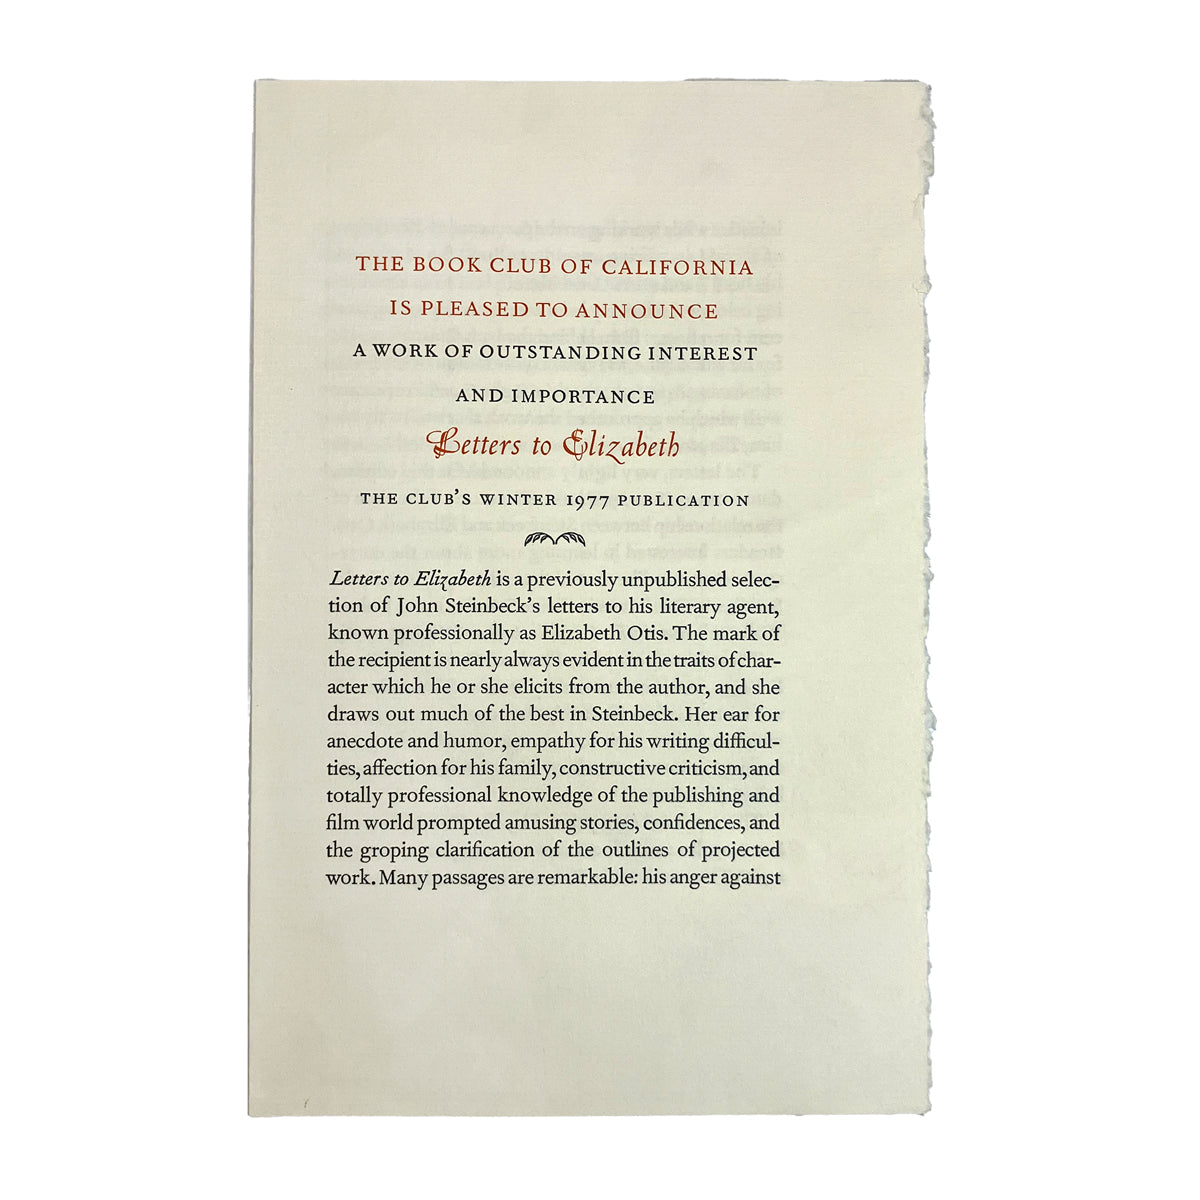 THE BOOK CLUB OF CALIFORNIA
IS PLEASED TO ANNOUNCE
A WORK OF OUTSTANDING INTEREST
AND IMPORTANCE
Letters to Elizabeth
THE CLUB'S WINTER 1977 PUBLICATION
Letters to Elizabeth is a previously unpublished selec-
tion of John Steinbeck's letters to his literary agent,
known professionally as Elizabeth Otis. The mark of
the recipient is nearly always evident in the traits of char-
acter which he or she elicits from the author, and she
draws out much of the best in Steinbeck. Her ear for
anecdote and humor, empathy for his writing difficul-
ties, affection for his family, constructive criticism, and
totally professional knowledge of the publishing and
film world prompted amusing stories, confidences, and
the groping clarification of the outlines of projected
work. Many passages are remarkable: his anger against